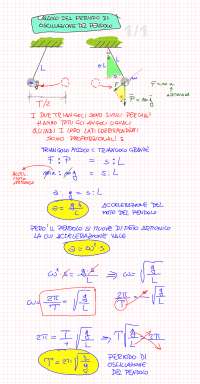 CALCOLO DEL PERIODO DI
OSCILLAZIONE DEL PENDOLO
1/1
L
L
S
T/2
F = m·a
P = m·g
I DUE TRIANGOLI SONO SIMILI PERCHÉ
HANNO TUTTI GLI ANGOLI UGUALI
QUINDI I LORO LATI CORRISPONDENTI
SONO PROPORZIONALI:
TRIANGOLO PICCOLO E TRIANGOLO GRANDE
F : P = s : L
m·a : m·g = s : L
a : g = s : L
a = g s / L
ACCELERAZIONE DEL
MOTO DEL PENDOLO
PERÒ IL PENDOLO SI MUOVE DI MOTO ARMONICO
LA CUI ACCELERAZIONE VALE
a = ω² · s
ω² s = g s / L ⇒ ω = √g/L
ω = 2π/T = √g/L
2π/T = √g/L
2π = T √g/L ⇒ T √g/L = 2π
T = 2π √L/g
PERIODO DI
OSCILLAZIONE
DEL PENDOLO